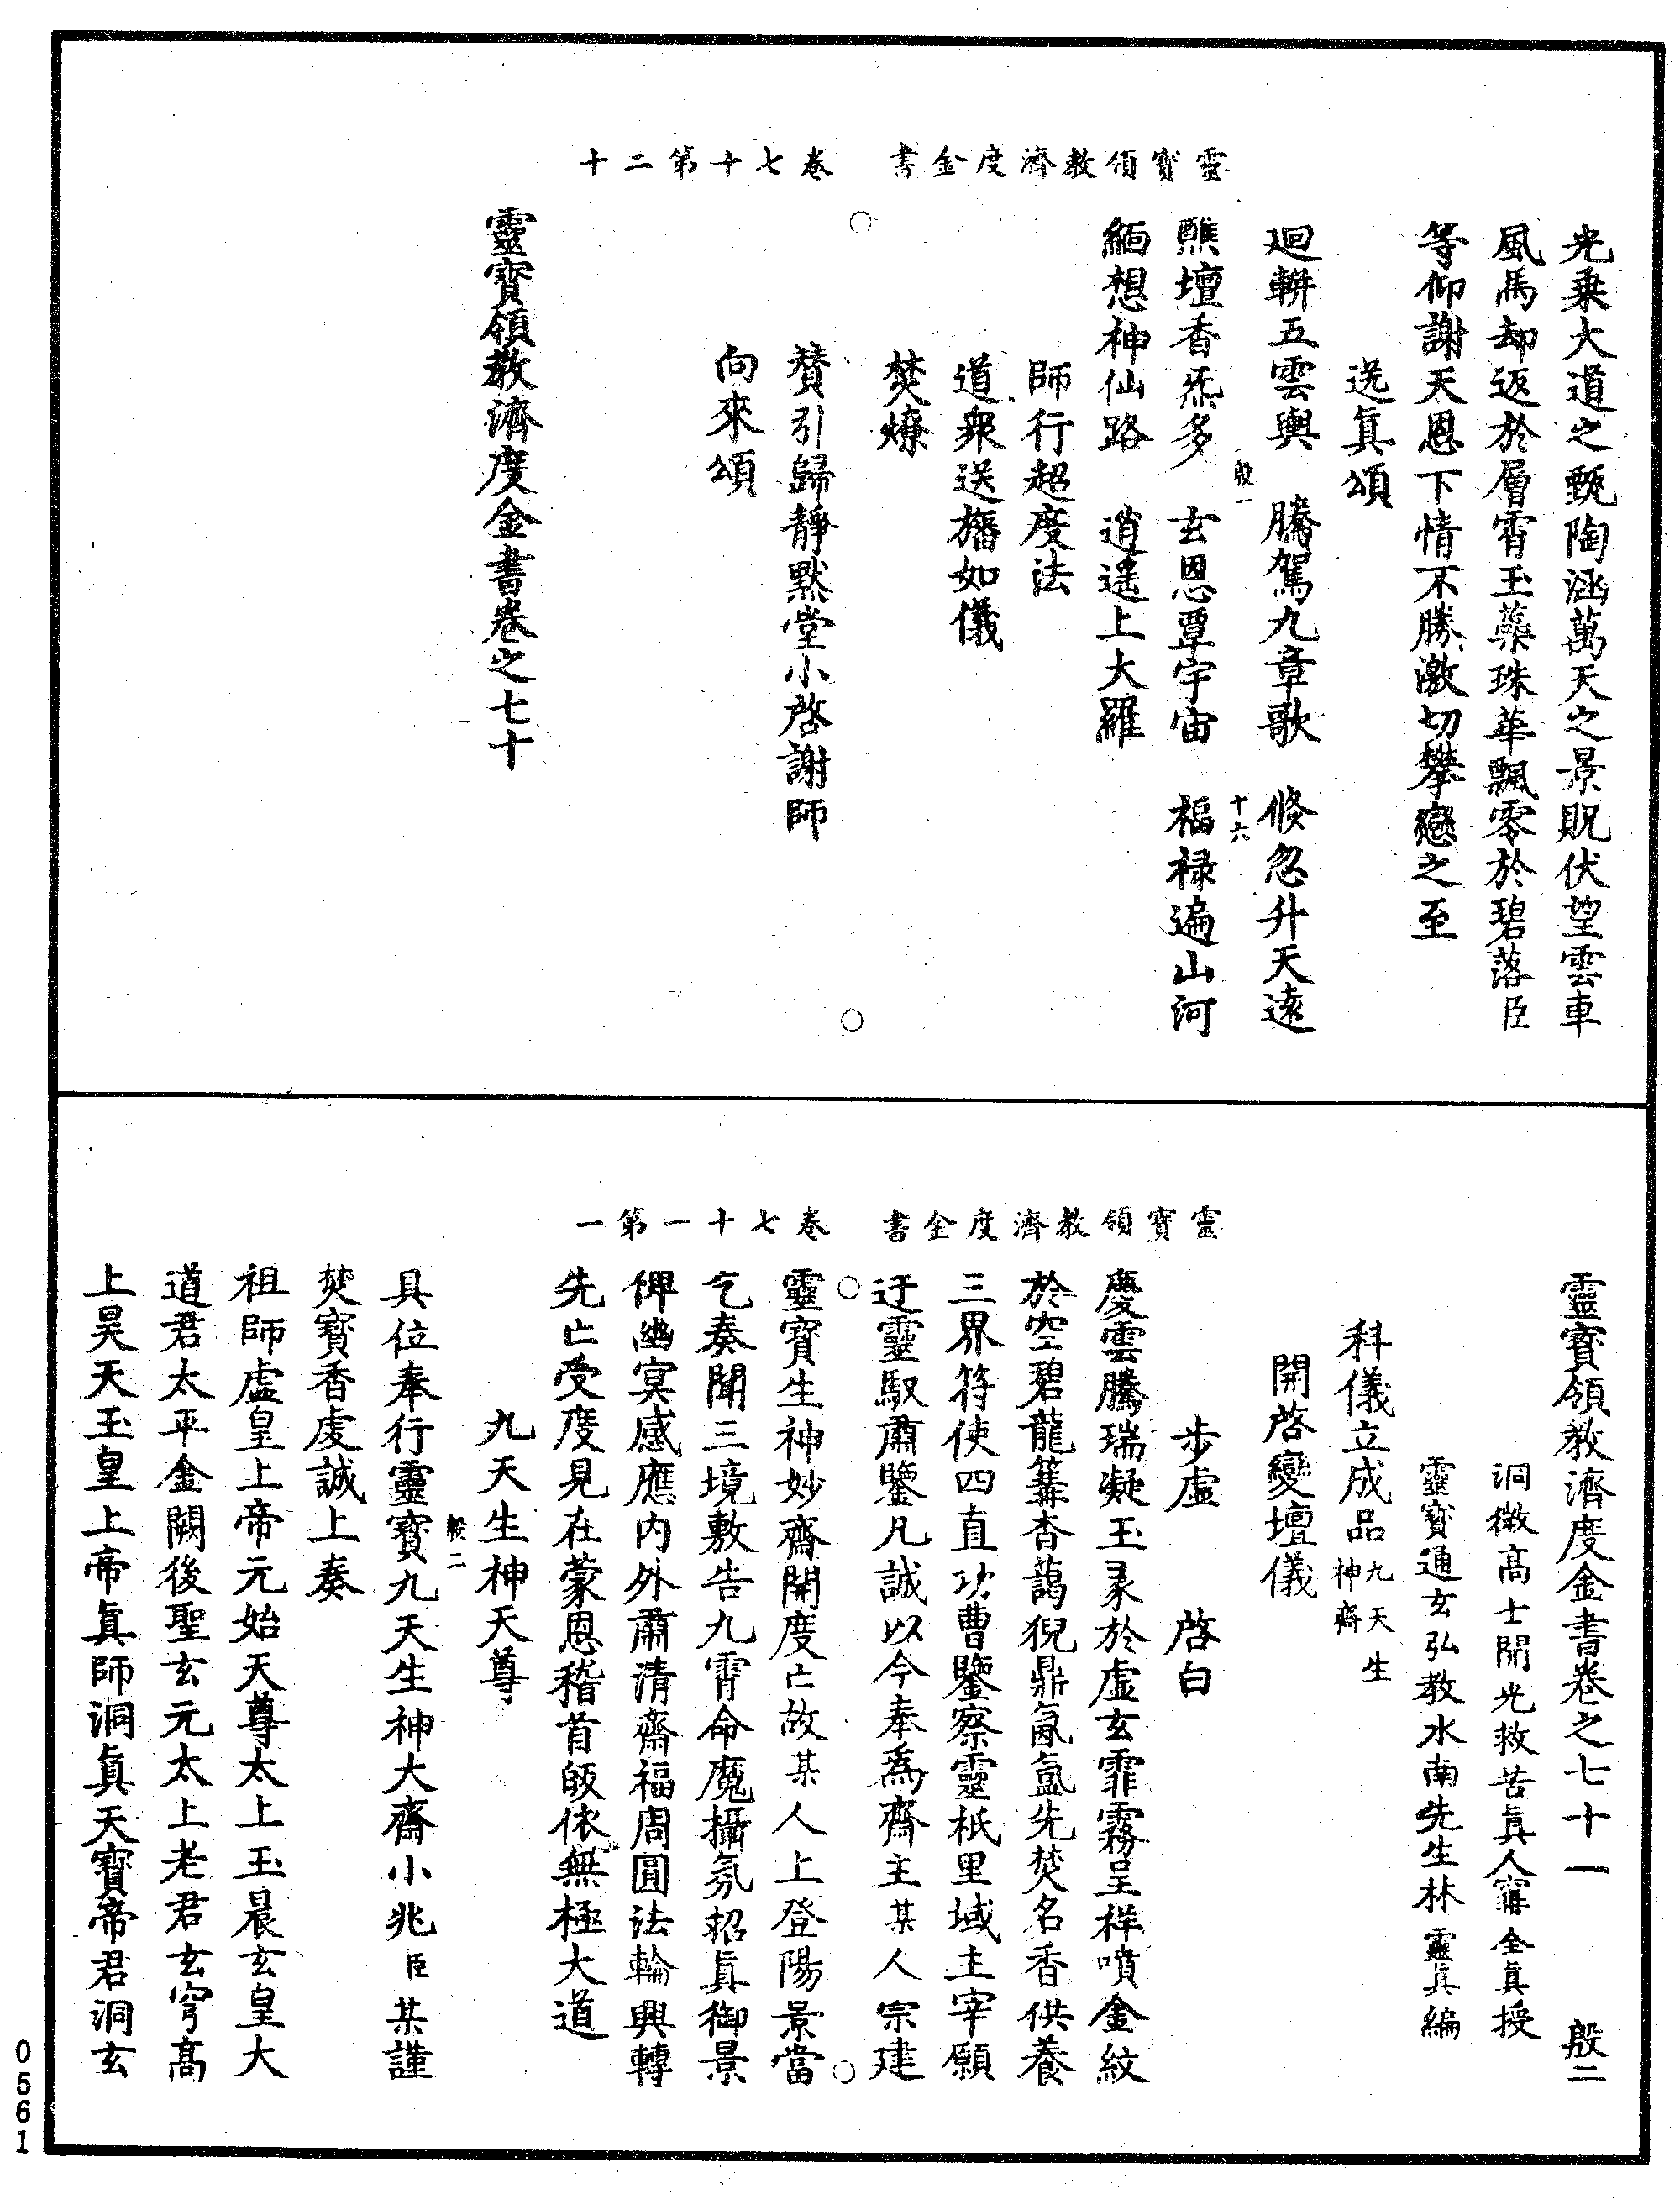 靈寶領教濟度金書　卷七十第二十
光乗大道之甄陶涵萬天之景貺伏望雲車
風馬却返於層霄玉蘂珠華飄零於碧落臣
等仰謝天恩下情不勝激切攀戀之至
送眞頌
迴輧五雲輿　騰駕九章歌　倐忽升天逺
殷一　十六
醮壇香炁多　玄恩覃宇宙　福禄遍山河
緬想神仙路　逍遥上大羅
師行超度法
道衆送旛如儀
焚燎
賛引歸靜黙堂小啓謝師
向來頌
靈寶領教濟度金書卷之七十
靈寶領教濟度金書　卷七十一第一
靈寶領教濟度金書卷之七十一　殷二
洞微高士開光救苦眞人甯全眞授
靈寶通玄弘教水南先生林靈眞編
科儀立成品九天生神齋
開啓變壇儀
步虛　啓白
慶雲騰瑞凝玉彖於虛玄霏霧呈祥噴金紋
於空碧龍篝杳藹猊鼎氤氳先焚名香供養
三界符使四直功曹鑒察靈祇里域主宰願
迂靈馭肅鑒凡誠以今奉爲齋主某人宗建
靈寶生神妙齋開度亡故某人上登陽景當
乞奏聞三境敷告九霄命魔攝氛招眞御景
俾幽冥感應内外肅清齋福周圓法輪興轉
先亡受度見在蒙恩稽首皈依無極大道
九天生神天尊
殷二
具位奉行靈寶九天生神大齋小兆臣某謹
焚寶香虔誠上奏
祖師虛皇上帝元始天尊太上玉晨玄皇大
道君太平金闕後聖玄元太上老君玄穹高
上昊天玉皇上帝眞師洞眞天寶帝君洞玄
0561